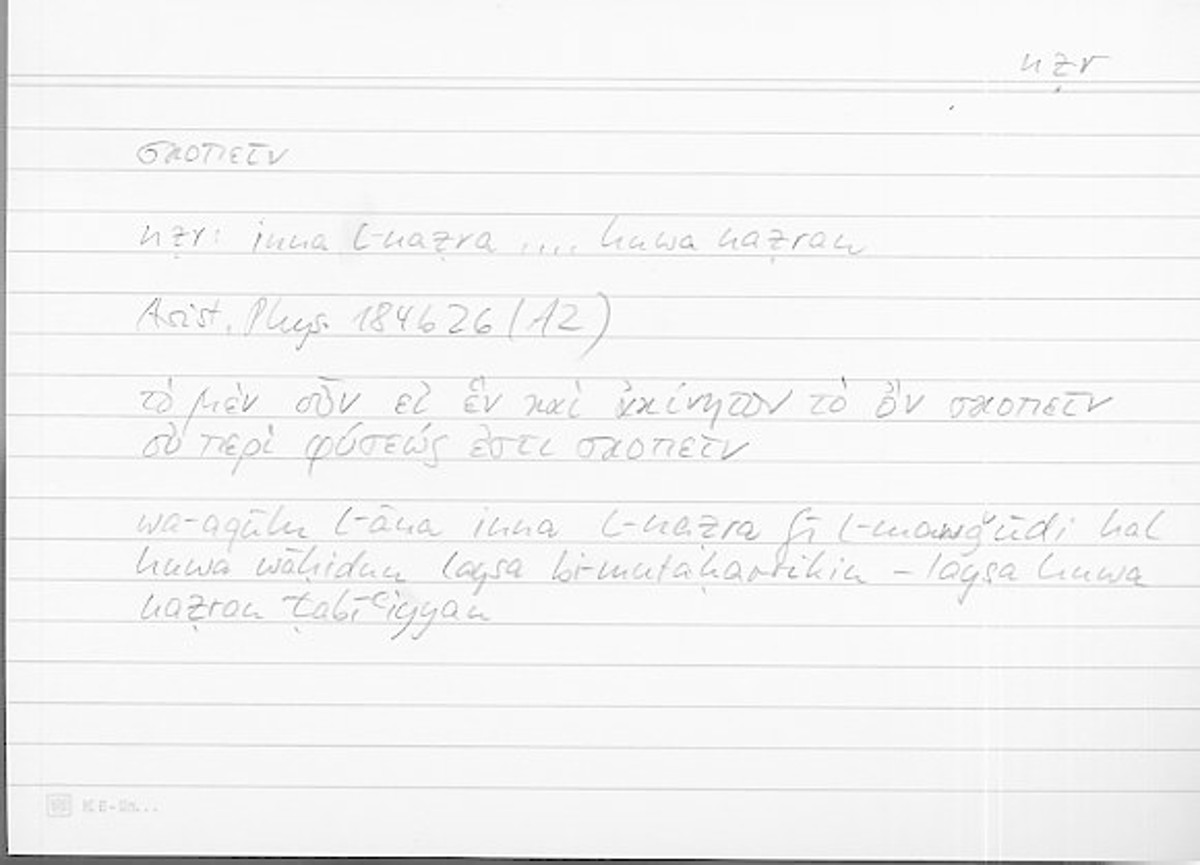 nẓr
σκοπεῖν
nẓr: inna l-naẓra .... huwa naẓran
Arist. Phys. 184b26 (A2)
τὸ μὲν οὖν εἰ ἓν καὶ ἀκίνητον τὸ ὂν σκοπεῖν
οὐ περὶ φύσεώς ἐστι σκοπεῖν
wa-aqūlu l-āna inna l-naẓra fī l-mawǧūdi hal
huwa wāḥidun laysa bi-mutaḥarrikin – laysa huwa
naẓran ṭabīʿiyyan